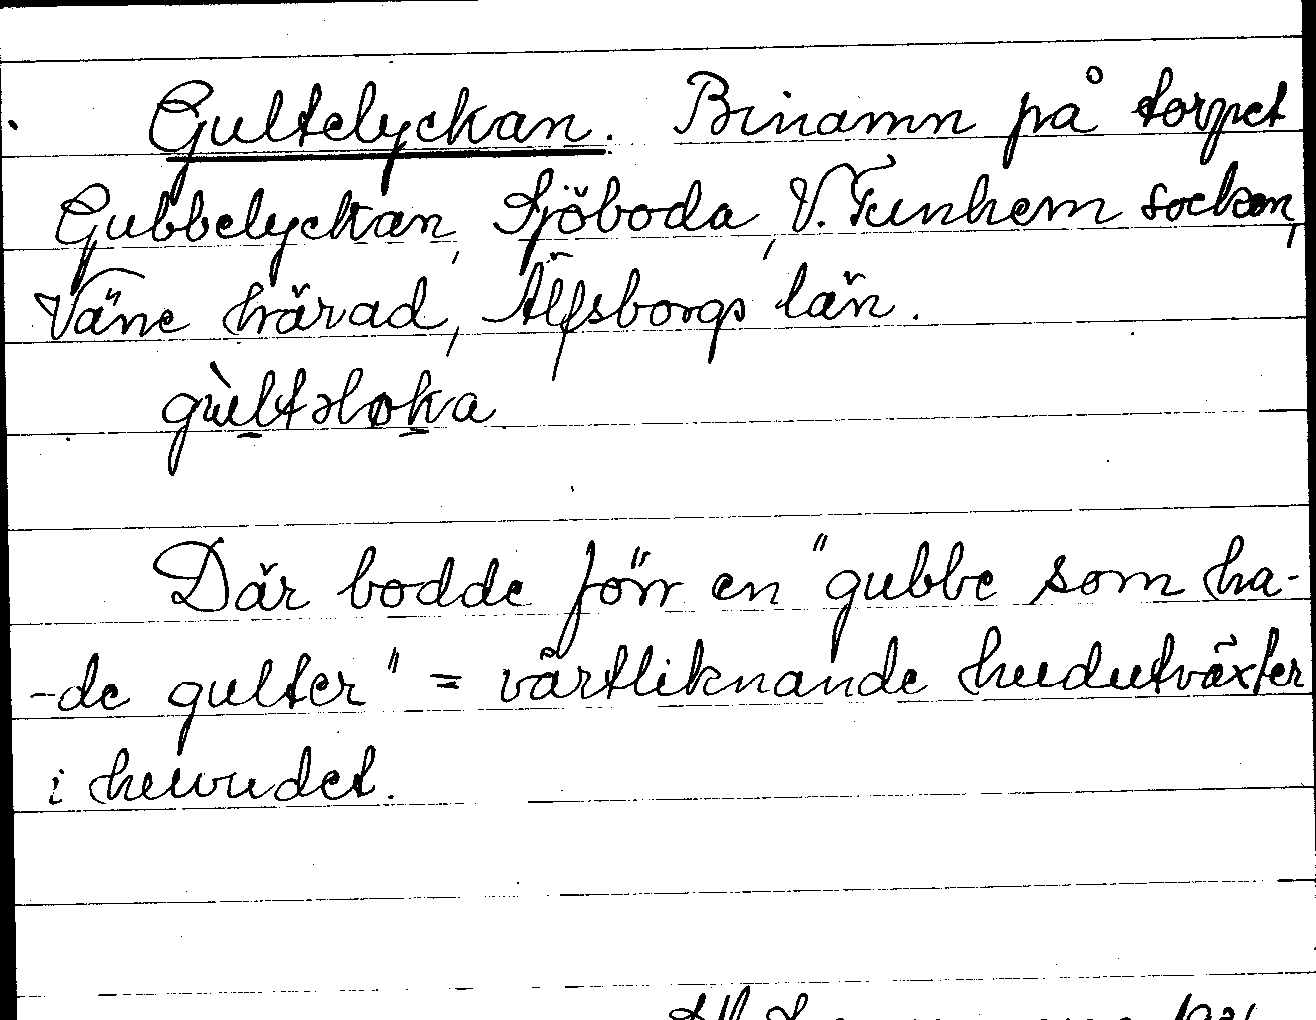 Gultelyckan. Binamn på torpet
Gubbelyckan, Sjöboda, V. Tunhem socken,
Väne härad, Älfsborgs län.
gùltəløka
Där bodde förr en "gubbe som ha-
-de gulter" = vårtliknande hudutväxter
i huvudet.